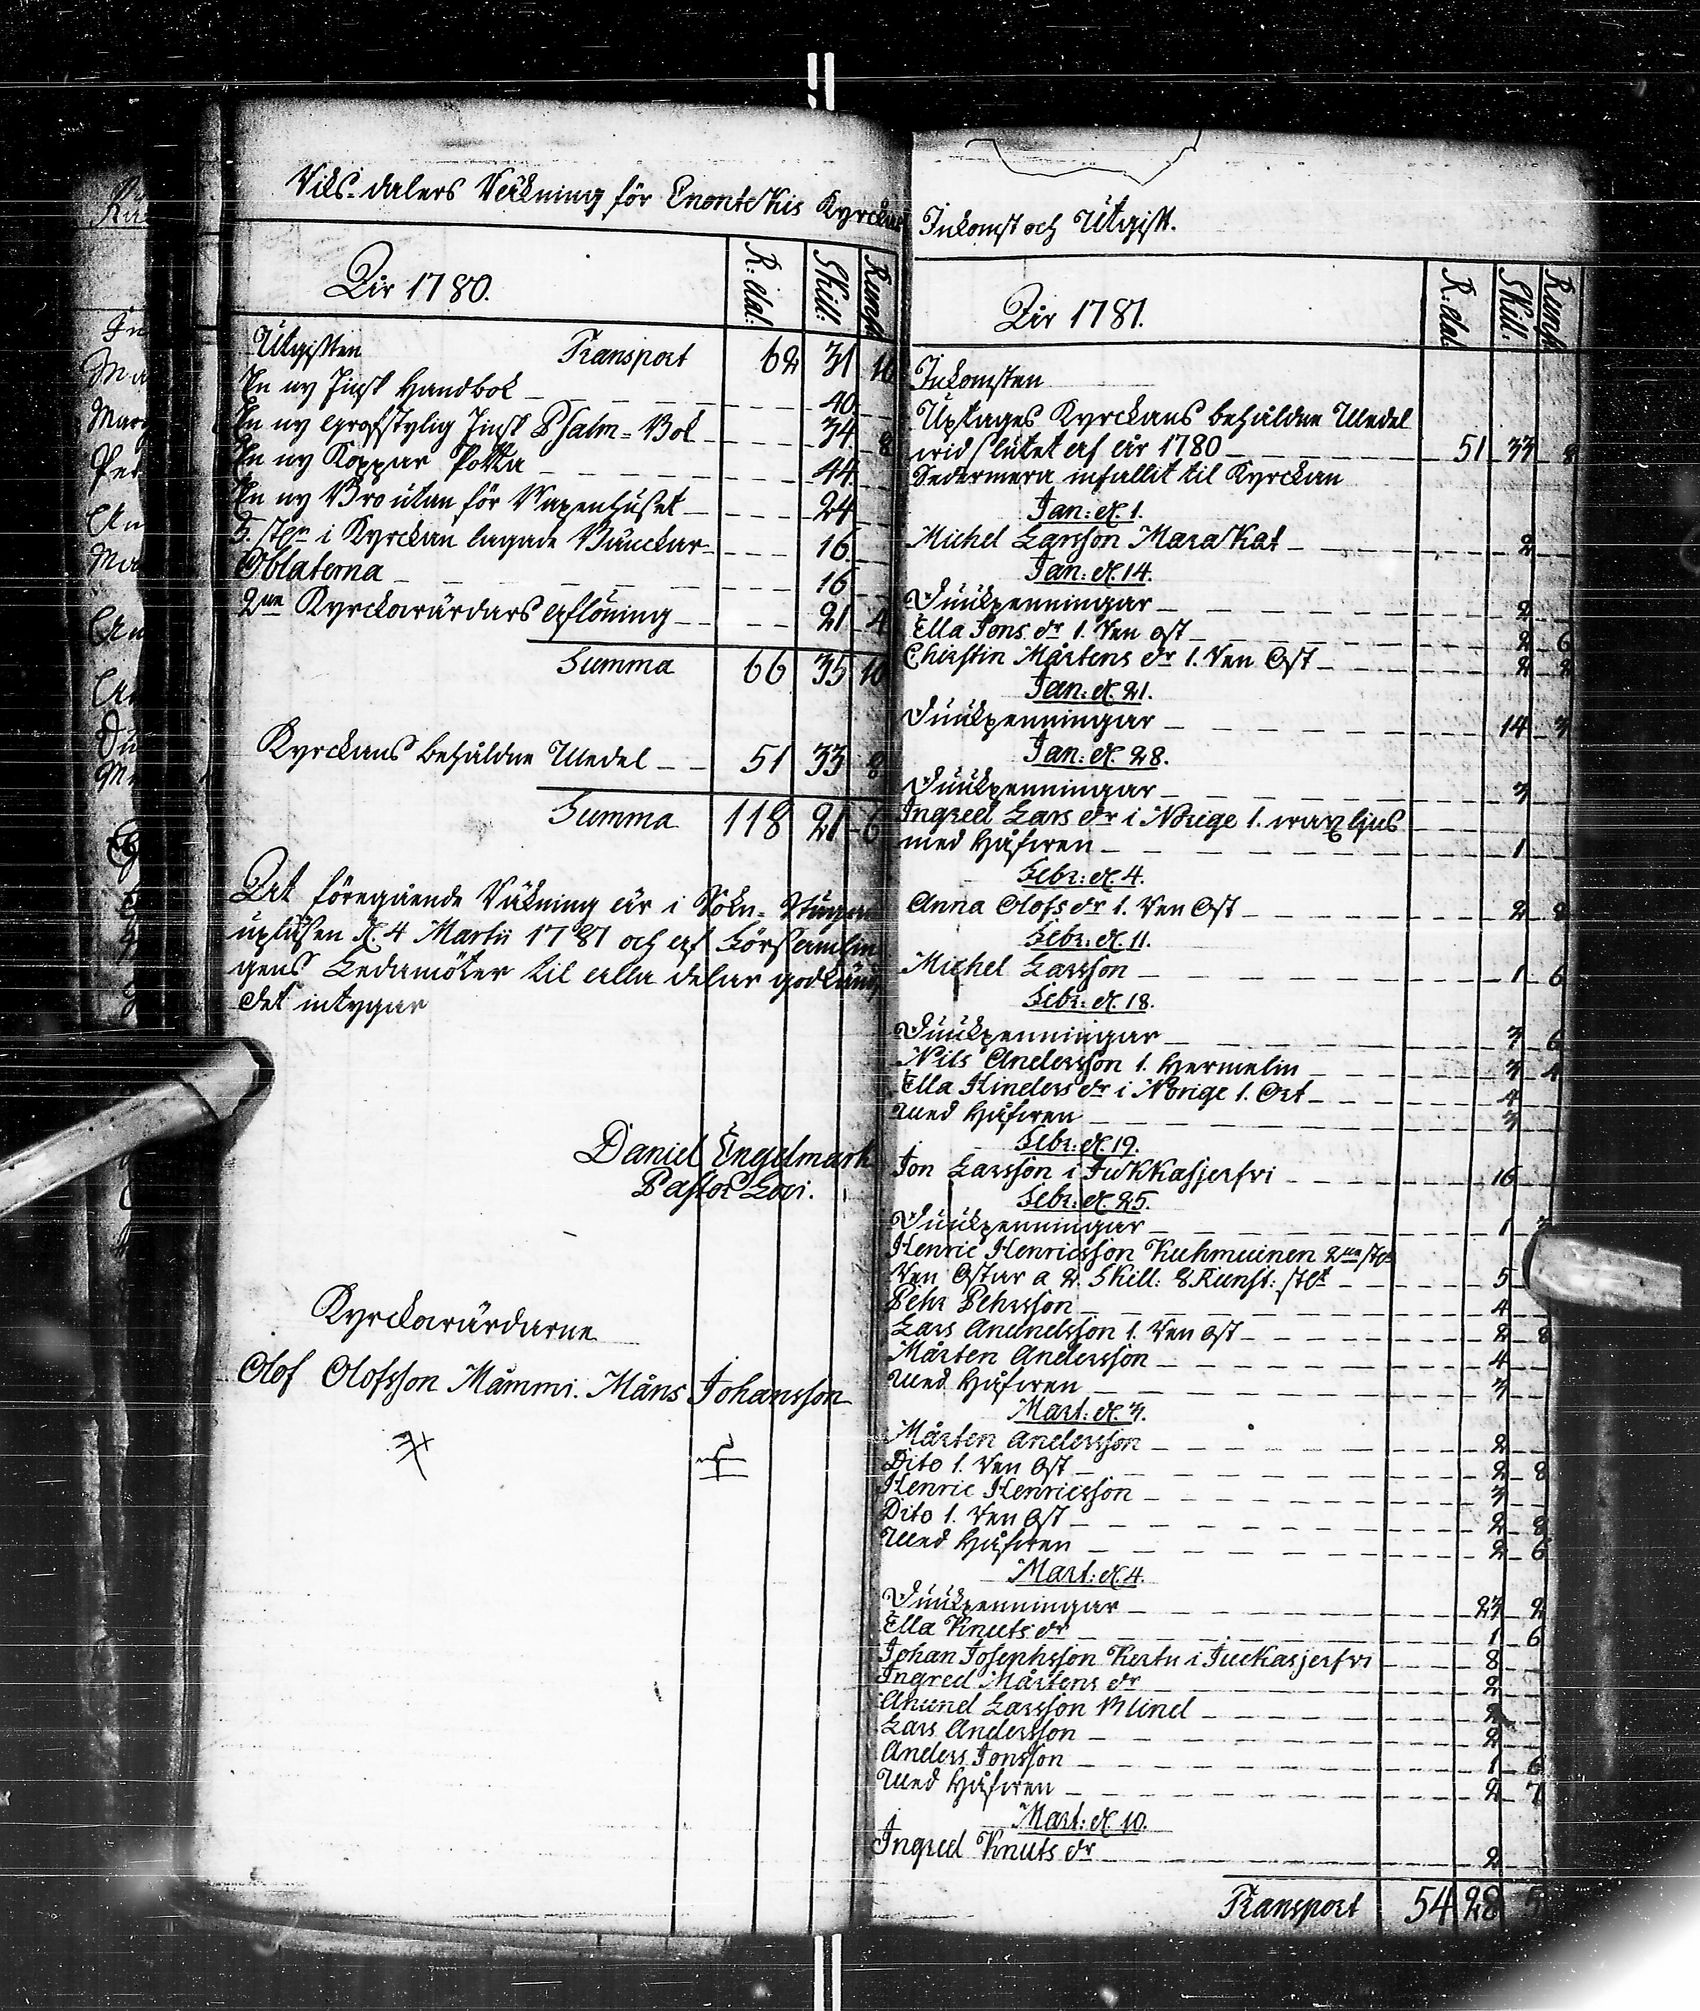 Riks-dalers Räkning för Enontekis Kyrckas
År 1780.
R:dal: Skill: Runst
Utgiften Transport 62 31 10
En ny Finsk Handbok 40
En ny grofstylig Finsk Psalm-Bok 34 8
En ny Koppar Potta 44
En ny Bro utan för Wapenhuset 24
i Kyrckan lagade Bänckar 16
Oblaterna 16
2ne Kyrckowärdars aflöning 21 4
Summa 66 35 10
Kyrckans behåldne Medel 51 33 8
Summa 118 21 6
Det föregående Räkning är i Sokn-Stugan
upläsen d. 4 Martii 1781 och af Församlin
gens Ledamöter til alla delar godkänd
det intygar
Daniel Engelmark
Pastor Loci.
Kyrckowärdarne
Olof Olofsson Mämmi. Måns Johansson
Inkomst och Utgift.
År 1781.
R:dal. Skill: Runst
Inkomsten
Uptages Kyrckans behåldne Medel
wid slutet af år 1780 51 33 8
Sedermera infallit til Kyrckan
Jan: d. 1.
Michel Larsson Marakat 2
Jan: d. 14.
Sinkpenningar 2
Ella Jons dr 1. Ren ost 2 6
Christin Mårtens dr 1. Ren Ost 2 8
Jan: d. 21.
Sinkpenningar 14 3
Jan: d. 28.
Sinkpenningar 3
Ingred Lars dr i Norige 1. wax ljus
med Håfwen 1
Febr: d. 4.
Anna Olofs dr 1. Ren Ost 2 8
Febr: d. 11.
Michel Larsson 1 6
Febr: d. 18.
Sinkpenningar 3 6
Nils Andersson 1. Hermelin 3 4
Ella Hinders dr i Norige 1. Ort 4
Med Håfwen 3
Febr: d. 19.
Jon Larsson i Jukkasjerfvi 16
Febr: d. 25.
Sinkpenningar 1
Henric Henricsson Kuhmuinen 2ne st
Ren Ostar a 2. Skill: 8 Runst: st 5
Pehr Pehrsson 4
Lars Amundsson 1. Ren ost 2 8
Mårten Andersson 4
Med Håfwen 3
Mart: d. 3.
Mårten Andersson 2
Dito 1. Ren Ost 2 8
Henric Henricsson 3
Dito 1. Ren Ost 2 8
Med Håfwen 2 6
Mart: d. 4.
Sinkpenningar 23 2
Ella Knuts dr 1 6
Johan Josephsson Kertu i Juckasjerfvi 8
Ingred Mårtens dr 2
Amund Larsson Blind 2
Lars Andersson 2
Anders Jonsson 1 6
Med Håfwen 2 7
Mart: d. 10.
Ingred Knuts dr 2
Transport 54 28 5